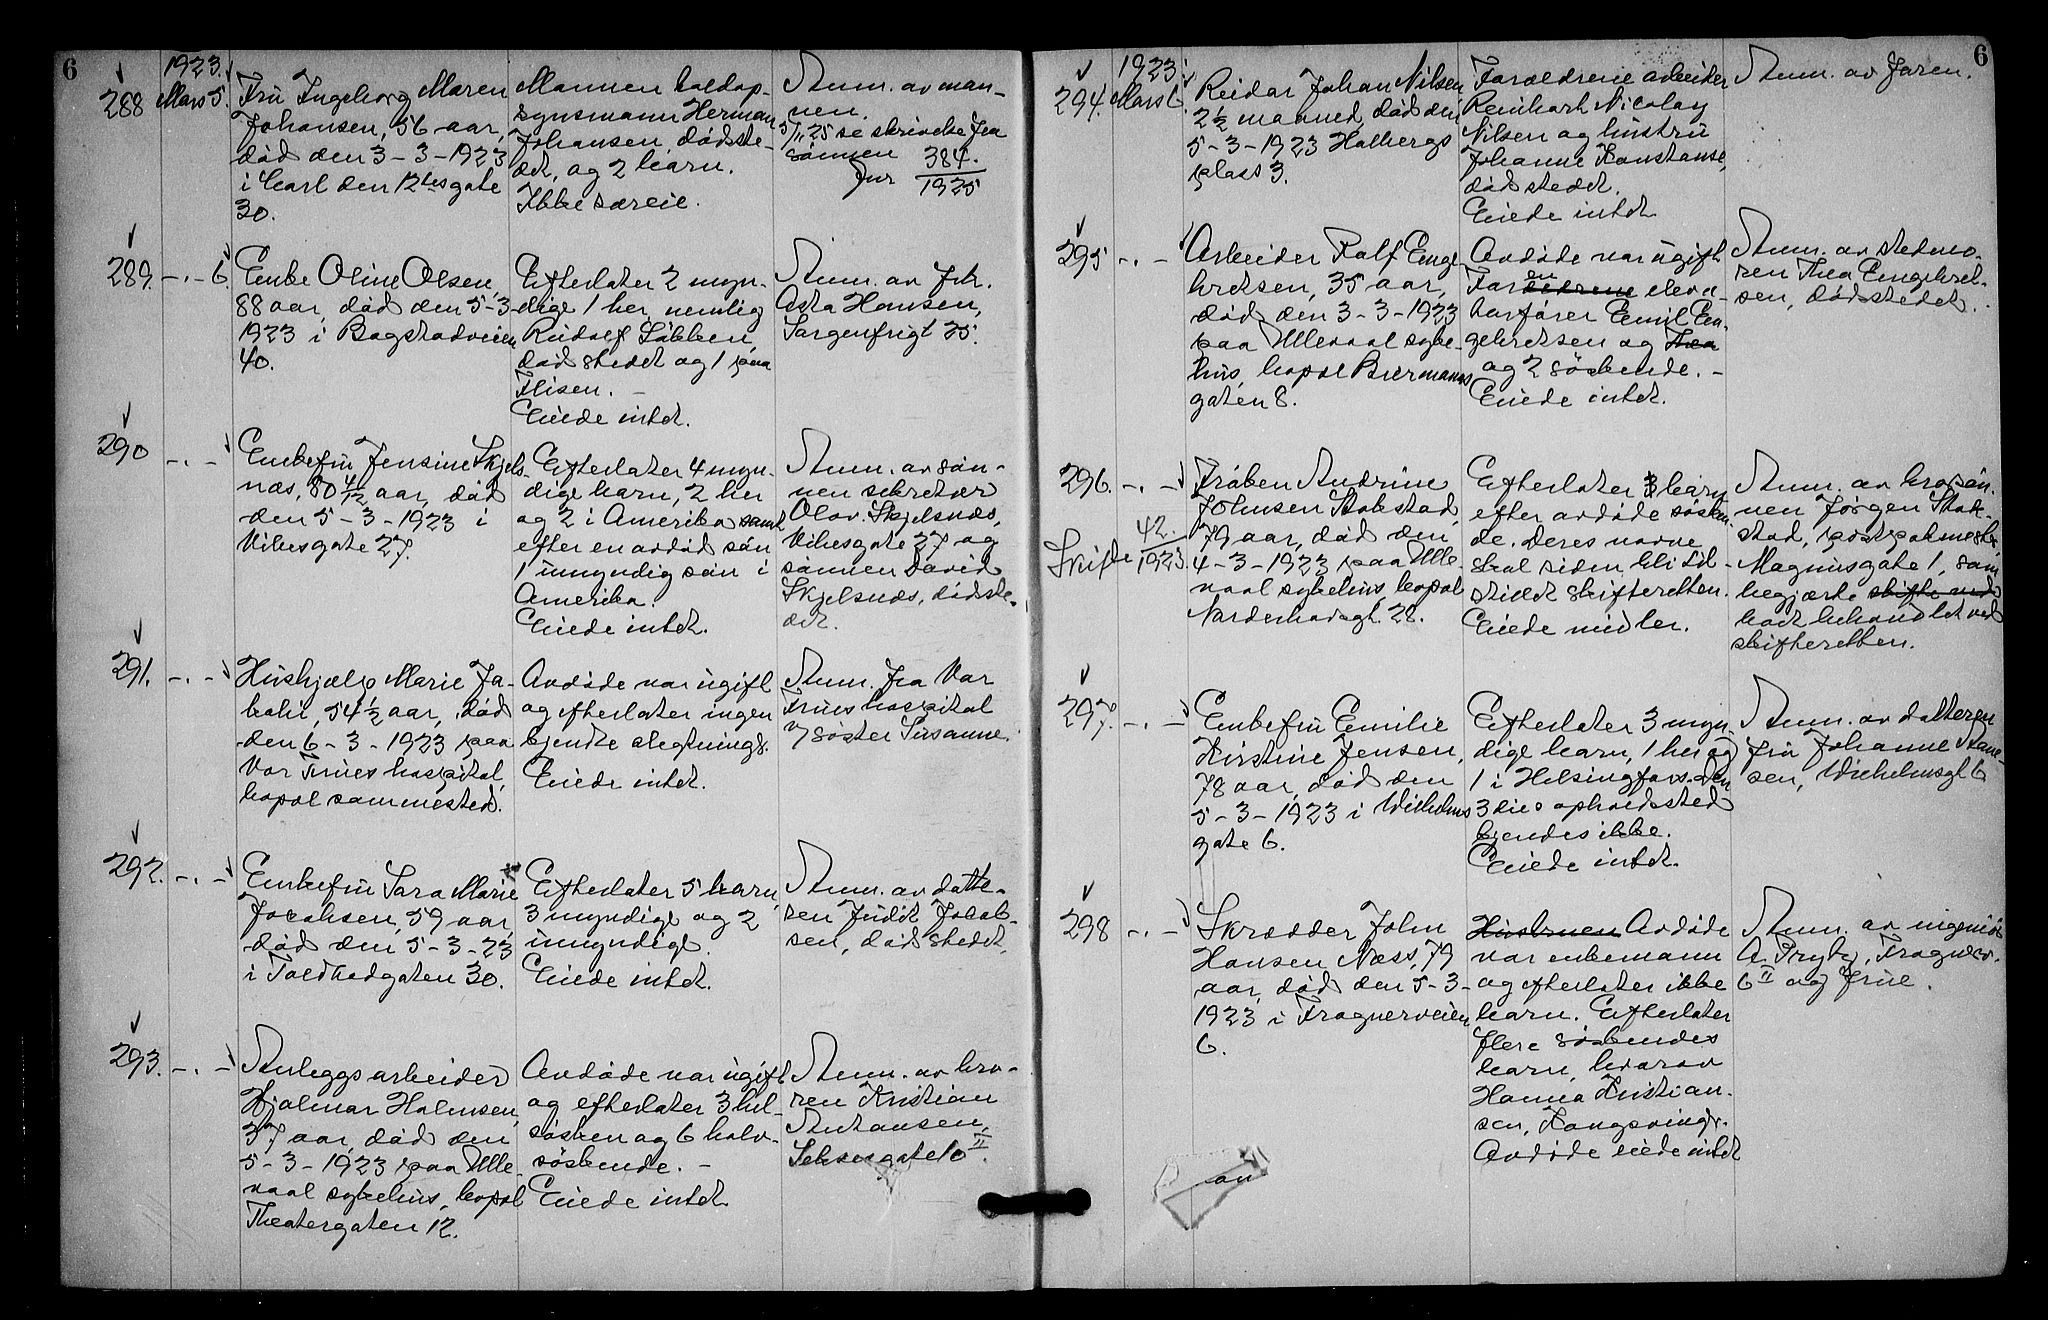 6
1923.
288
Mars 5.
Fru Ingeborg Maren
Johansen, 56 aar,
død den 3-3-1923
i Carl den 12tesgate
30.
Mannen toldop-
synsmann Herman
Johansen, dødste-
det, og 2 barn.
Ikke særeie.
Anm. av man-
nen.
5/11 25 se skrivelse fra
sønnen
Jnr 384./1925
289.
-.- 6.
Enke Oline Olsen
88 aar, død den 5-3-
1923 i Bogstadveien
40.
Efterlater 2 myn-
dige 1 her, nemlig
Rudolf Løkken,
dødstedet og 1 paa
Flisen. -
Eiede intet.
Anm. av Frk.
Asta Hansen,
Sorgenfrigt 35.
290
-.-
Enkefru Jensine Skjels-
næs, 80 4/12 aar, død
den 5-3-1923 i
Vibesgate 27.
Efterlater 4 myn-
dige barn, 2 her
og 2 i Amerika samt
efter en avdød søn
1 umyndig søn i
Amerika.
Eiede intet.
Anm. av søn-
nen sekretær
Olav Skjelsnæs,
Vibesgate 27 og
sønnen David
Skjelsnæs, dødste-
det.
291.
-.-
Hushjælp Marie Ja-
kobi, 54 1/2 aar, død
den 6-3-1923 paa
Vor Frues hospital,
bopæl sammested.
Avdøde var ugift
og efterlater ingen
kjendte slegtninge.
Eiede intet.
Anm. fra Vor
Frues hospital
v/ søster Susanne.
292.
-.-
Enkefru Sara Marie
Jacobsen, 59 aar,
død den 5-3-23
i Toldbodgaten 30.
Efterlater 5 barn,
3 myndige og 2
umyndige.
Eiede intet.
Anm. av datte-
ren Judit Jacob-
sen, dødstedet.
293.
-.-
Anleggsarbeider
Hjalmar Halmsen,
37 aar, død den
5-3-1923 paa Ulle-
vaal sykehus, bopæl
Theatergaten 12.
Avdøde var ugift
og efterlater 3 hel-
søsken og 6 halv-
søskende. -
Eiede intet.
Anm. av bro-
ren Kristian
Antonsen,
10 II.
6
1923.
294.
Mars 6.
Reidar Johan Nilsen
2 1/2 maaned, død den
5-3-1923 Halbergs
plass 3.
Forældrene arbeider
Reinhart Nicolay
Nilsen og hustru
Johanne Konstanse,
dødstedet.
Eiede intet.
Anm. av faren.
295
-.-
Arbeider Rolf Enge-
bretsen, 35 aar,
død den 3-3-1923
paa Ullevaal syke-
hus, bopæl Biermanns
gaten 8.
Avdøde var ugift.
Faren eleva-
torfører Emil En-
gebretsen og Thea
og 2 søskende. -
Eiede intet.
Anm. av stedmo-
ren Thea Engebret-
sen, dødstedet.
296.
-.-
Skifte 42./1923.
Frøken Andrine
Johnsen Stokstad,
79 aar, død den
4-3-1923 paa Ulle-
vaal sykehus, bopæl
Norderhovsgt. 28.
Efterlater 3 barn
efter avdøde søsken-
de. Deres navne
skal siden bli til-
stillet skifteretten.
Eiede midler.
Anm. av brorsøn-
nen Jørgen Stok-
stad, postpakmester,
Magnusgate 1, som
begjærte skifte ved
boet behandlet ved
skifteretten.
297.
-.-
Enkefru Emilie
Kirstine Jensen,
78 aar, død den
5-3-1923 i Wilhelms
gate 6.
Efterlater 3 myn-
dige barn, 1 her og
1 i Helsingfors. Den
3dies opholdssted
kjendes ikke.
Eiede intet.
Anm. av datteren
fru Johanne Hane-
sen, Wilhelmsgt 6
298
-.-
Skrædder John
Hansen Næss, 79
aar, død den 5-3-
1923 i Frognerveien
6.
Hustruen Avdøde
var enkemann
og efterlater ikke
barn. Efterlater
flere søskendes
barn, hvorav
Hanna Kristian-
sen, Kongsvinger.
Avdøde eiede intet
Anm. av ingeniør
A. Fryberg, Frognerv.
6 II og frue.